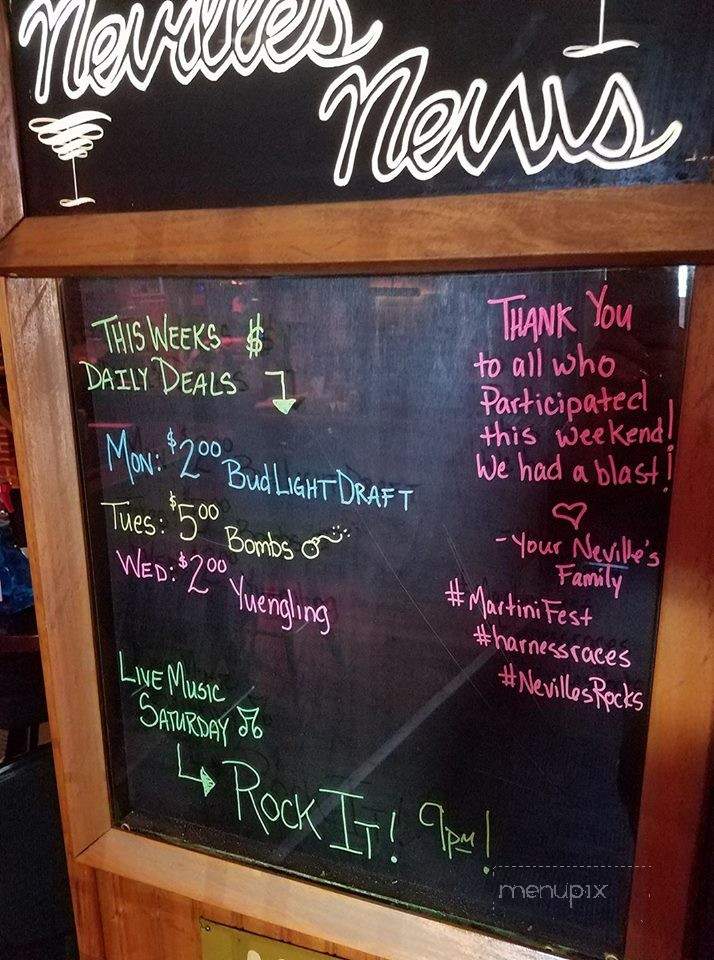 Nevilles
News
THIS WEEKS $
DAILY DEALS
MON: $2.00 Bud LIGHT DRAFT
Tues: $5.00 Bombs
WED: $2.00 Yuengling
LIVE MUSIC
SATURDAY
ROCK IT! 9pm!
THANK YOU
to all who
Participated
this weekend!
We had a blast!
-Your Neville's
Family
#MartiniFest
#harnessraces
#NevillesRocks
menupix